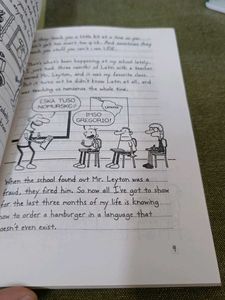 they teach you a little bit at a time so you
don't get too smart too quick. And sometimes they
teach you stuff you can't use.
That's what's been happening at my school lately.
took three months of Latin with a teacher
named Mr. Leyton, and it was my favorite class.
didn't know Latin at all, and
was teaching us nonsense the whole time.
ESKA TUSO
NOMURSKO!
IMSO
GREGORIO!
When the school found out Mr. Leyton was a
fraud, they fired him. So now all I've got to show
for the last three months of my life is knowing
how to order a hamburger in a language that
doesn't even exist.
9